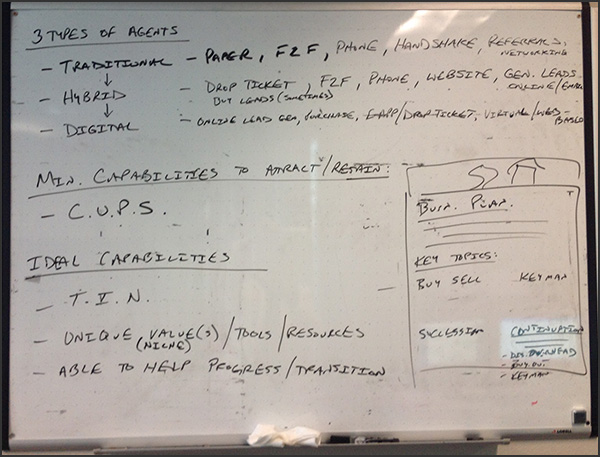 3 TYPES OF AGENTS
- TRADITIONAL - PAPER, F2F, PHONE, HANDSHAKE, REFERRALS,
NETWORKING
- HYBRID - DROP TICKET, F2F, PHONE, WEBSITE, GEN. LEADS
BUY LEADS (SOMETIMES) ONLINE/EMAIL
- DIGITAL - ONLINE LEAD GEN, PURCHASE, EAPP/DROP TICKET, VIRTUAL/WEB-
BASED
MIN. CAPABILITIES TO ATTRACT/RETAIN:
- C.U.P.S.
IDEAL CAPABILITIES
- T.I.N.
- UNIQUE VALUE(S)/TOOLS/RESOURCES
(NICHE)
- ABLE TO HELP PROGRESS/TRANSITION
PLAN.
KEY TOPICS:
BUY SELL KEYMAN
SUCCESSION CONTINUATION
- DIS. OVERHEAD
- KEYMAN